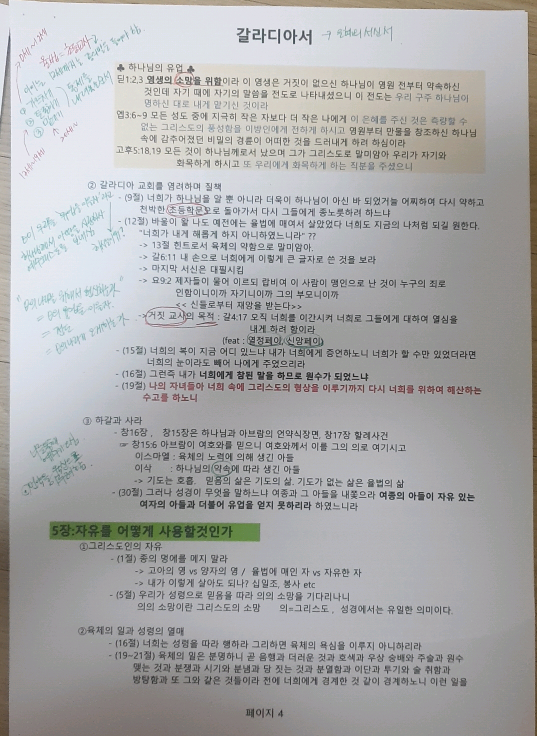 갈라디아서
♣ 하나님의 유업 ♣
딛1:2,3 영생의 소망을 위함이라 이 영생은 거짓이 없으신 하나님이 영원 전부터 약속하신
것인데 자기 때에 자기의 말씀을 전도로 나타내셨으니 이 전도는 우리 구주 하나님이
명하신 대로 내게 맡기신 것이라
엡3:6~9 모든 성도 중에 지극히 작은 자보다 더 작은 나에게 이 은혜를 주신 것은 측량할 수
없는 그리스도의 풍성함을 이방인에게 전하게 하시고 영원부터 만물을 창조하신 하나님
속에 감추어졌던 비밀의 경륜이 어떠한 것을 드러내게 하려 하심이라
고후5:18,19 모든 것이 하나님께로서 났으며 그가 그리스도로 말미암아 우리가 자기와
화목하게 하시고 또 우리에게 화목하게 하는 직분을 주셨으니
② 갈라디아 교회를 염려하며 질책
- (9절) 너희가 하나님을 알 뿐 아니라 더욱이 하나님이 아신 바 되었거늘 어찌하여 다시 약하고
천박한 초등학문으로 돌아가서 다시 그들에게 종노릇하려 하느냐
- (12절) 바울이 할 나도 예전에는 율법에 매여서 살았었다 너희도 지금의 나처럼 되길 원한다.
"너희가 내게 해롭게 하지 아니하였느니라" ??
-> 13절 힌트로서 육체의 약함으로 말미암아.
-> 갈6:11 내 손으로 너희에게 이렇게 큰 글자로 쓴 것을 보라
-> 마지막 서신은 대필시킴
-> 요9:2 제자들이 물어 이르되 랍비여 이 사람이 맹인으로 난 것이 누구의 죄로
인함이니이까 자기니이까 그의 부모니이까
<< 신들로부터 재앙을 받는다>>
->거짓 교사의 목적 : 갈4:17 오직 너희를 이간시켜 너희로 그들에게 대하여 열심을
내게 하려 함이라
(feat : 열정페이, 신앙페이)
- (15절) 너희의 복이 지금 어디 있느냐 내가 너희에게 증언하노니 너희가 할 수만 있었더라면
너희의 눈이라도 빼어 나에게 주었으리라
- (16절) 그런즉 내가 너희에게 참된 말을 하므로 원수가 되었느냐
- (19절) 나의 자녀들아 너희 속에 그리스도의 형상을 이루기까지 다시 너희를 위하여 해산하는
수고를 하노니
③ 하갈과 사라
- 창16장 , 창15장은 하나님과 아브람의 언약식장면, 창17장 할례사건
☞ 창15:6 아브람이 여호와를 믿으니 여호와께서 이를 그의 의로 여기시고
이스마엘 : 육체의 노력에 의해 생긴 아들
이삭 : 하나님의 약속에 따라 생긴 아들
-> 기도는 호흡, 믿음의 삶은 기도의 삶. 기도가 없는 삶은 율법의 삶
- (30절) 그러나 성경이 무엇을 말하느냐 여종과 그 아들을 내쫓으라 여종의 아들이 자유 있는
여자의 아들과 더불어 유업을 얻지 못하리라 하였느니라
5장:자유를 어떻게 사용할것인가
①그리스도인의 자유
- (1절) 종의 멍에를 메지 말라
-> 고아의 영 vs 양자의 영 / 율법에 매인 자 vs 자유한 자
-> 내가 이렇게 살아도 되나? 십일조, 봉사 etc
- (5절) 우리가 성령으로 믿음을 따라 의의 소망을 기다리나니
의의 소망이란 그리스도의 소망 의=그리스도, 성경에서는 유일한 의미이다.
②육체의 일과 성령의 열매
- (16절) 너희는 성령을 따라 행하라 그리하면 육체의 욕심을 이루지 아니하리라
- (19~21절) 육체의 일은 분명하니 곧 음행과 더러운 것과 호색과 우상 숭배와 주술과 원수
맺는 것과 분쟁과 시기와 분냄과 당 짓는 것과 분열함과 이단과 투기와 술 취함과
방탕함과 또 그와 같은 것들이라 전에 너희에게 경계한 것 같이 경계하노니 이런 일을
페이지 4